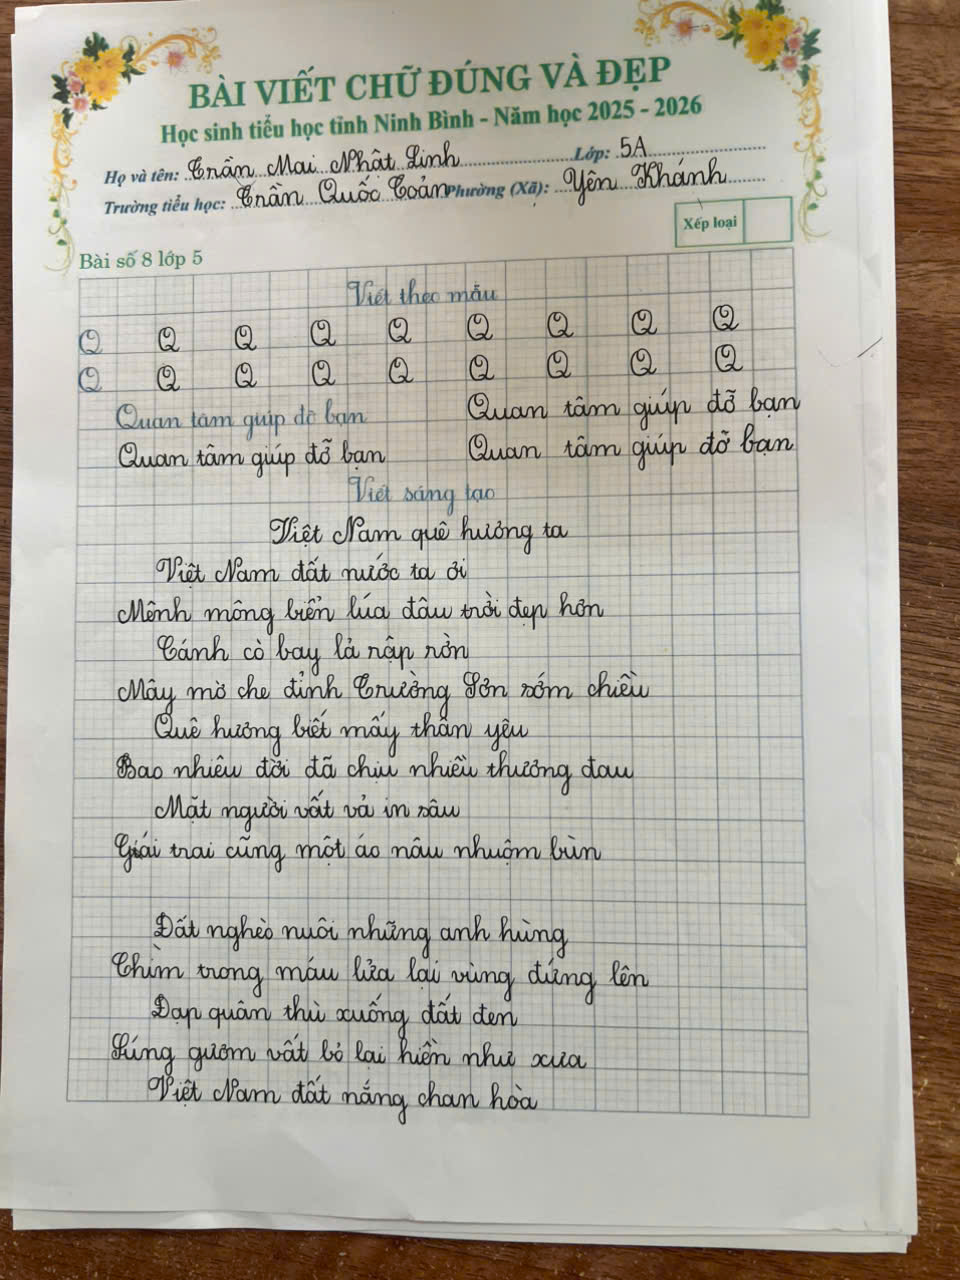 BÀI VIẾT CHỮ ĐÚNG VÀ ĐẸP
Học sinh tiểu học tỉnh Ninh Bình - Năm học 2025 - 2026
Họ và tên: Trần Mai Nhật Linh Lớp: 5A
Trường tiểu học: Trần Quốc Toản Phường (Xã): Yên Khánh
Xếp loại
Bài số 8 lớp 5
Viết theo mẫu
Q Q Q Q Q Q Q Q Q
Q Q Q Q Q Q Q Q Q
Quan tâm giúp đỡ bạn Quan tâm giúp đỡ bạn
Quan tâm giúp đỡ bạn Quan tâm giúp đỡ bạn
Viết sáng tạo
Việt Nam quê hương ta
Việt Nam đất nước ta ơi
Mênh mông biển lúa đâu trời đẹp hơn
Cánh cò bay lả rập rờn
Mây mờ che đỉnh Trường Sơn sớm chiều
Quê hương biết mấy thân yêu
Bao nhiêu đời đã chịu nhiều thương đau
Mặt người vất vả in sâu
Gái trai cũng một áo nâu nhuộm bùn
Đất nghèo nuôi những anh hùng
Chìm trong máu lửa lại vùng đứng lên
Đạp quân thù xuống đất đen
Súng gươm vất bỏ lại hiền như xưa
Việt Nam đất nắng chan hòa